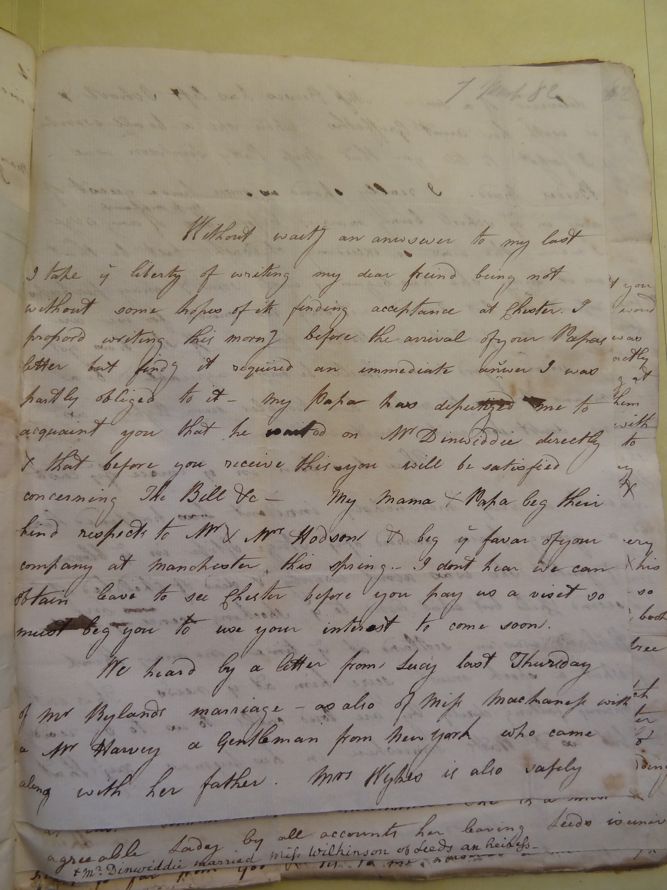 7 82
Without waitg an answer to my last
I take ye liberty of writing my dear freind being not
without some hopes of its finding acceptance at Chester. I
propos'd writing this morng before the arrival of your Papas
letter but findg it required an immediate answer I was
partly obliged to it – My Papa has deputized me to
acquaint you that he waited on Mr Dinwiddie directly
& that before you receive this you will be satisfied
concerning The Bill &c – My Mama & Papa beg their
kind respects to Mr & Mrs Hodson & beg ye favor of your
company at manchester this spring – I dont hear we can
obtain leave to see Chester before you pay us a visit so
must beg you to use your interest to come soon.
We heard by a letter from Lucy last Thursday
of Mr Rylands marriage – as also of Miss Machaness with
a Mr Harvey a Gentleman from New York who came
along with her father. Mrs Wykes is also safely
agreeable Lady by all accounts her leaving Leeds is
& Mr Dinwiddie married Miss Wilkinson of Leeds an heiress